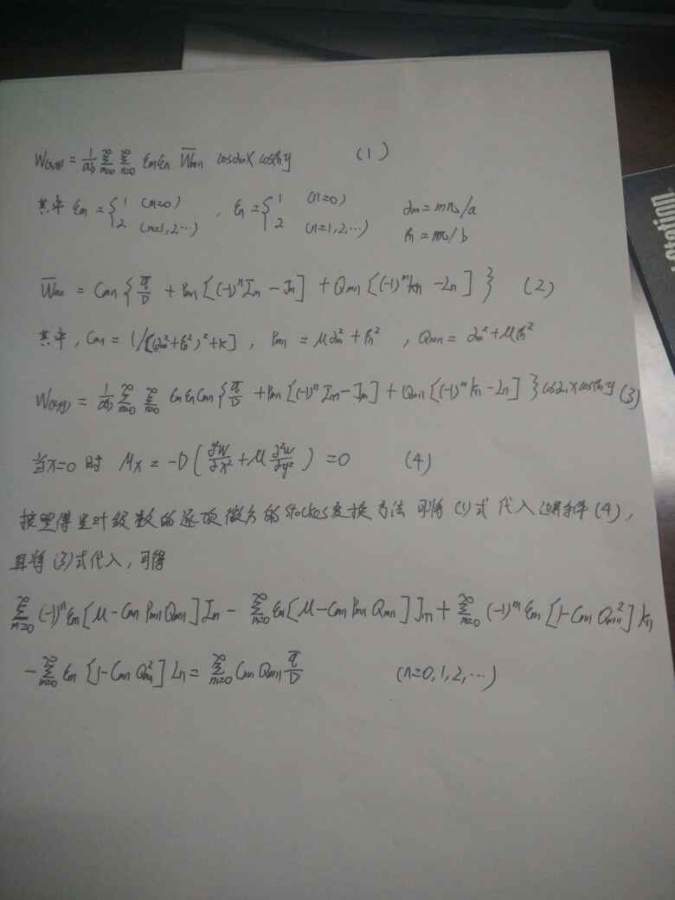 W(x,y) = 1/ab ∑_{m=0}^{∞} ∑_{n=0}^{∞} εmεn W̄mn cosαmx cosβny (1)
其中 εm = { 1 (m=0) 2 (m=1,2…) , εn = { 1 (n=0) 2 (n=1,2,…) αm = mπ/a βn = nπ/b
W̄mn = Cmn { q̄/D + Pmn [(-1)^n Im - Jm] + Qmn [(-1)^m Kn - Ln] } (2)
其中, Cmn = 1/[(αm²+βn²)²+K], Pmn = μαm²+βn², Qmn = αm²+μβn²
W(x,y) = 1/ab ∑_{m=0}^{∞} ∑_{n=0}^{∞} εmεnCmn { q̄/D + Pmn [(-1)^n Im - Jm] + Qmn [(-1)^m Kn - Ln] } cosαmx cosβny (3)
当x=0 时 Mx = -D ( ∂²w/∂x² + μ ∂²w/∂y² ) = 0 (4)
按照傅里叶级数的逐项微分的Stockes变换方法 可将 (1)式 代入边界条件 (4),
再将 (3)式代入, 可得
∑_{m=0}^{∞} (-1)^n εm [μ - Cmn Pmn Qmn] Im - ∑_{m=0}^{∞} εm [μ - Cmn Pmn Qmn] Jm + ∑_{m=0}^{∞} (-1)^m εm [1 - Cmn Qmn²] Kn
- ∑_{m=0}^{∞} εm [1 - Cmn Qmn²] Ln = ∑_{m=0}^{∞} Cmn Qmn q̄/D (n=0,1,2,…)
station